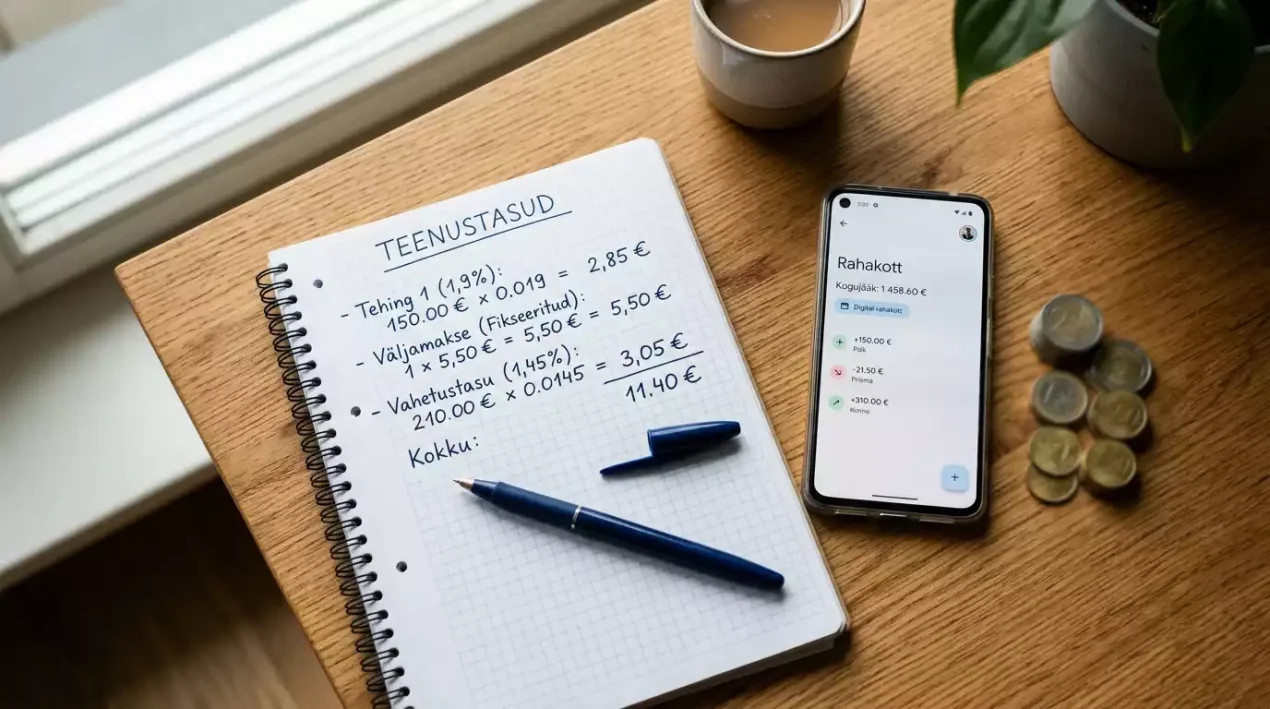 TEENUSTASUD
- Tehing 1 (1,9%):
150.00 € × 0.019 = 2,85 €
- Väljamakse (Fikseeritud):
1 × 5,50 € = 5,50 € = 5,50 €
- Vahetustasu (1,45%):
210.00 € × 0.0145 = 3,05 €
11.40 €
Kokku:
Rahakott
Kogujääk: 1 458.60 €
Digital rahakott
+150.00 €
Palk
-21.50 €
Prisma
+310.00 €